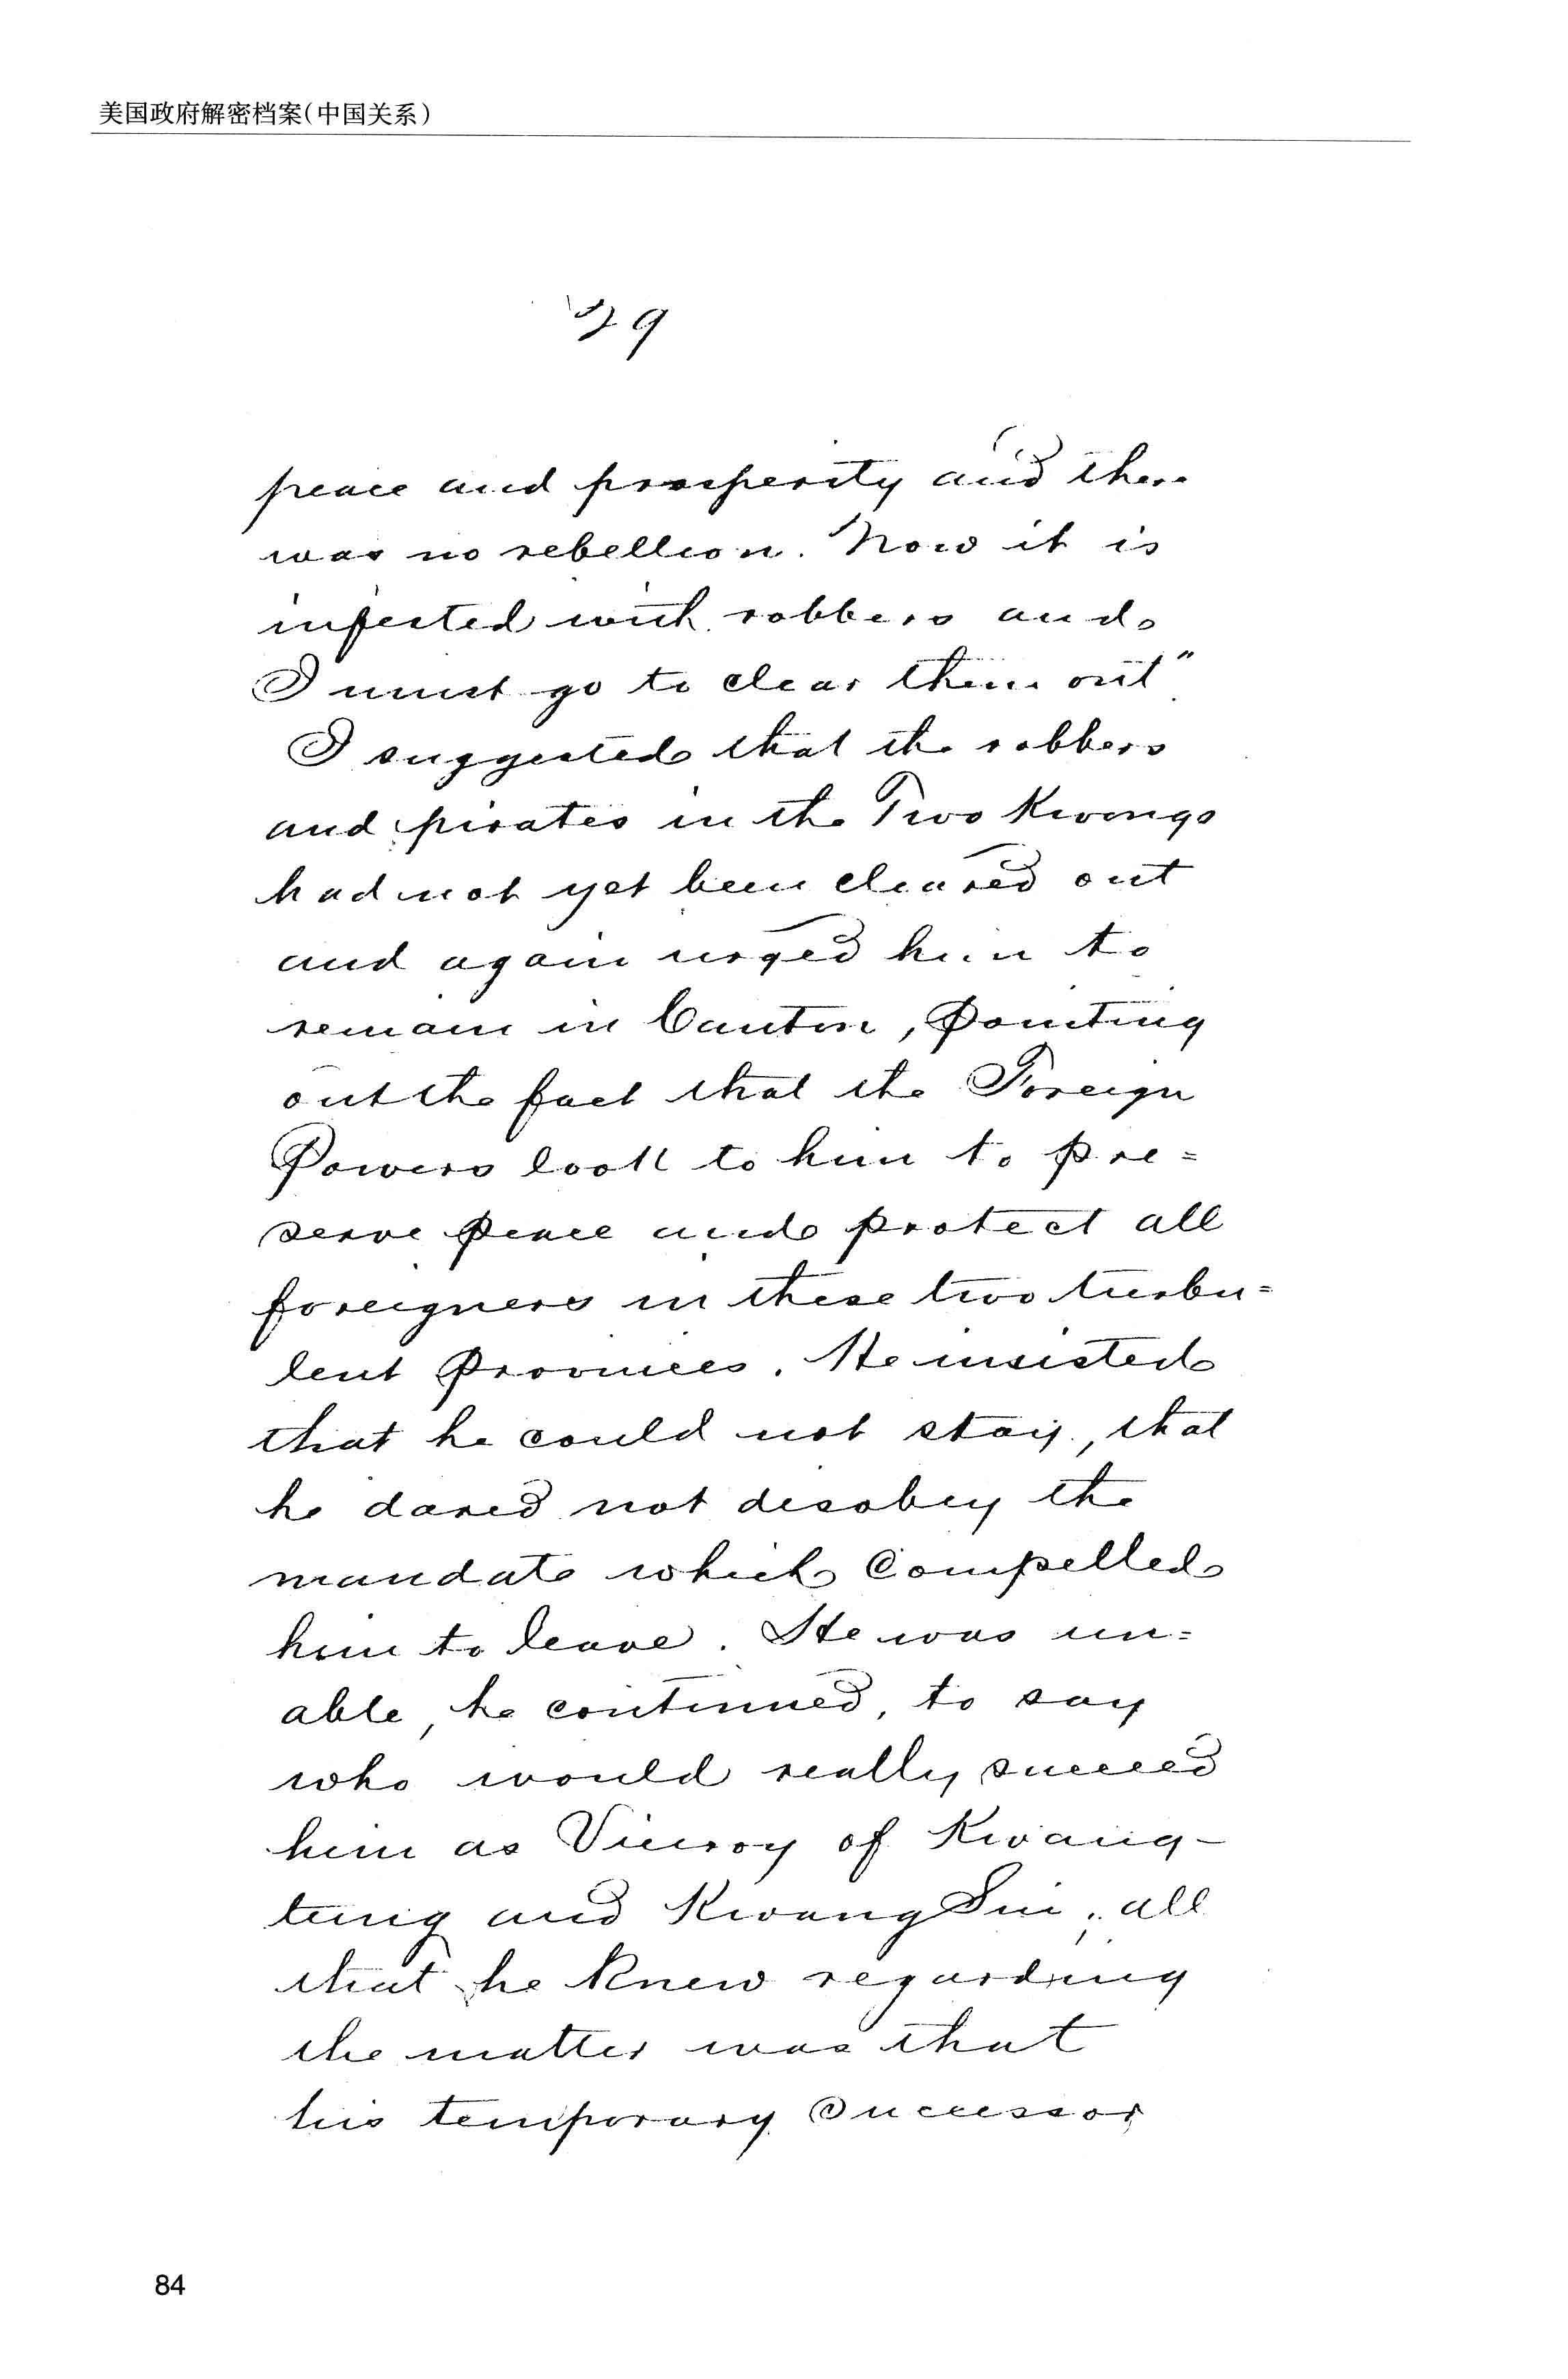 美国政府解密档案(中国关系)
29
peace and prosperity and there
was no rebellion. Now it is
infested with robbers and
I must go to clear them out"
I suggested that the robbers
and pirates in the Two Kwongs
had not yet been cleared out
and again urged him to
remain in Canton, Pointing
out the fact that the Foreign
Powers look to him to pre=
serve Peace and protect all
foreigners in these two turbu=
lent Provinces. He insisted
that he could not stay, that
he dared not disobey the
mandate which Compelled
him to leave. He was un=
able, he continued, to say
who would really succeed
him as Viceroy of Kwang-
tung and Kwang Sui; all
that he Knew regarding
the matter was that
his temporary Successor
84